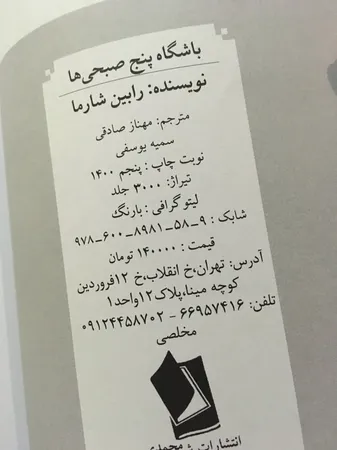 باشگاه پنج صبحی‌ها
نویسنده: رابین شارما
مترجم: مهناز صادقی
سمیه یوسفی
نوبت چاپ: پنجم ۱۴۰۰
تیراژ: ۳۰۰۰ جلد
لیتوگرافی: بارنگ
شابک: ۹-۵۸-۸۹۸۱-۶۰۰-۹۷۸
قیمت: ۱۴۰۰۰۰ تومان
آدرس: تهران،خ انقلاب،خ ۱۲فروردین
کوچه مینا،پلاک۱۲واحد۱
تلفن: ۶۶۹۵۷۴۱۶ - ۰۹۱۲۴۴۵۸۷۰۲
مخلصی
انتشارات محمدی